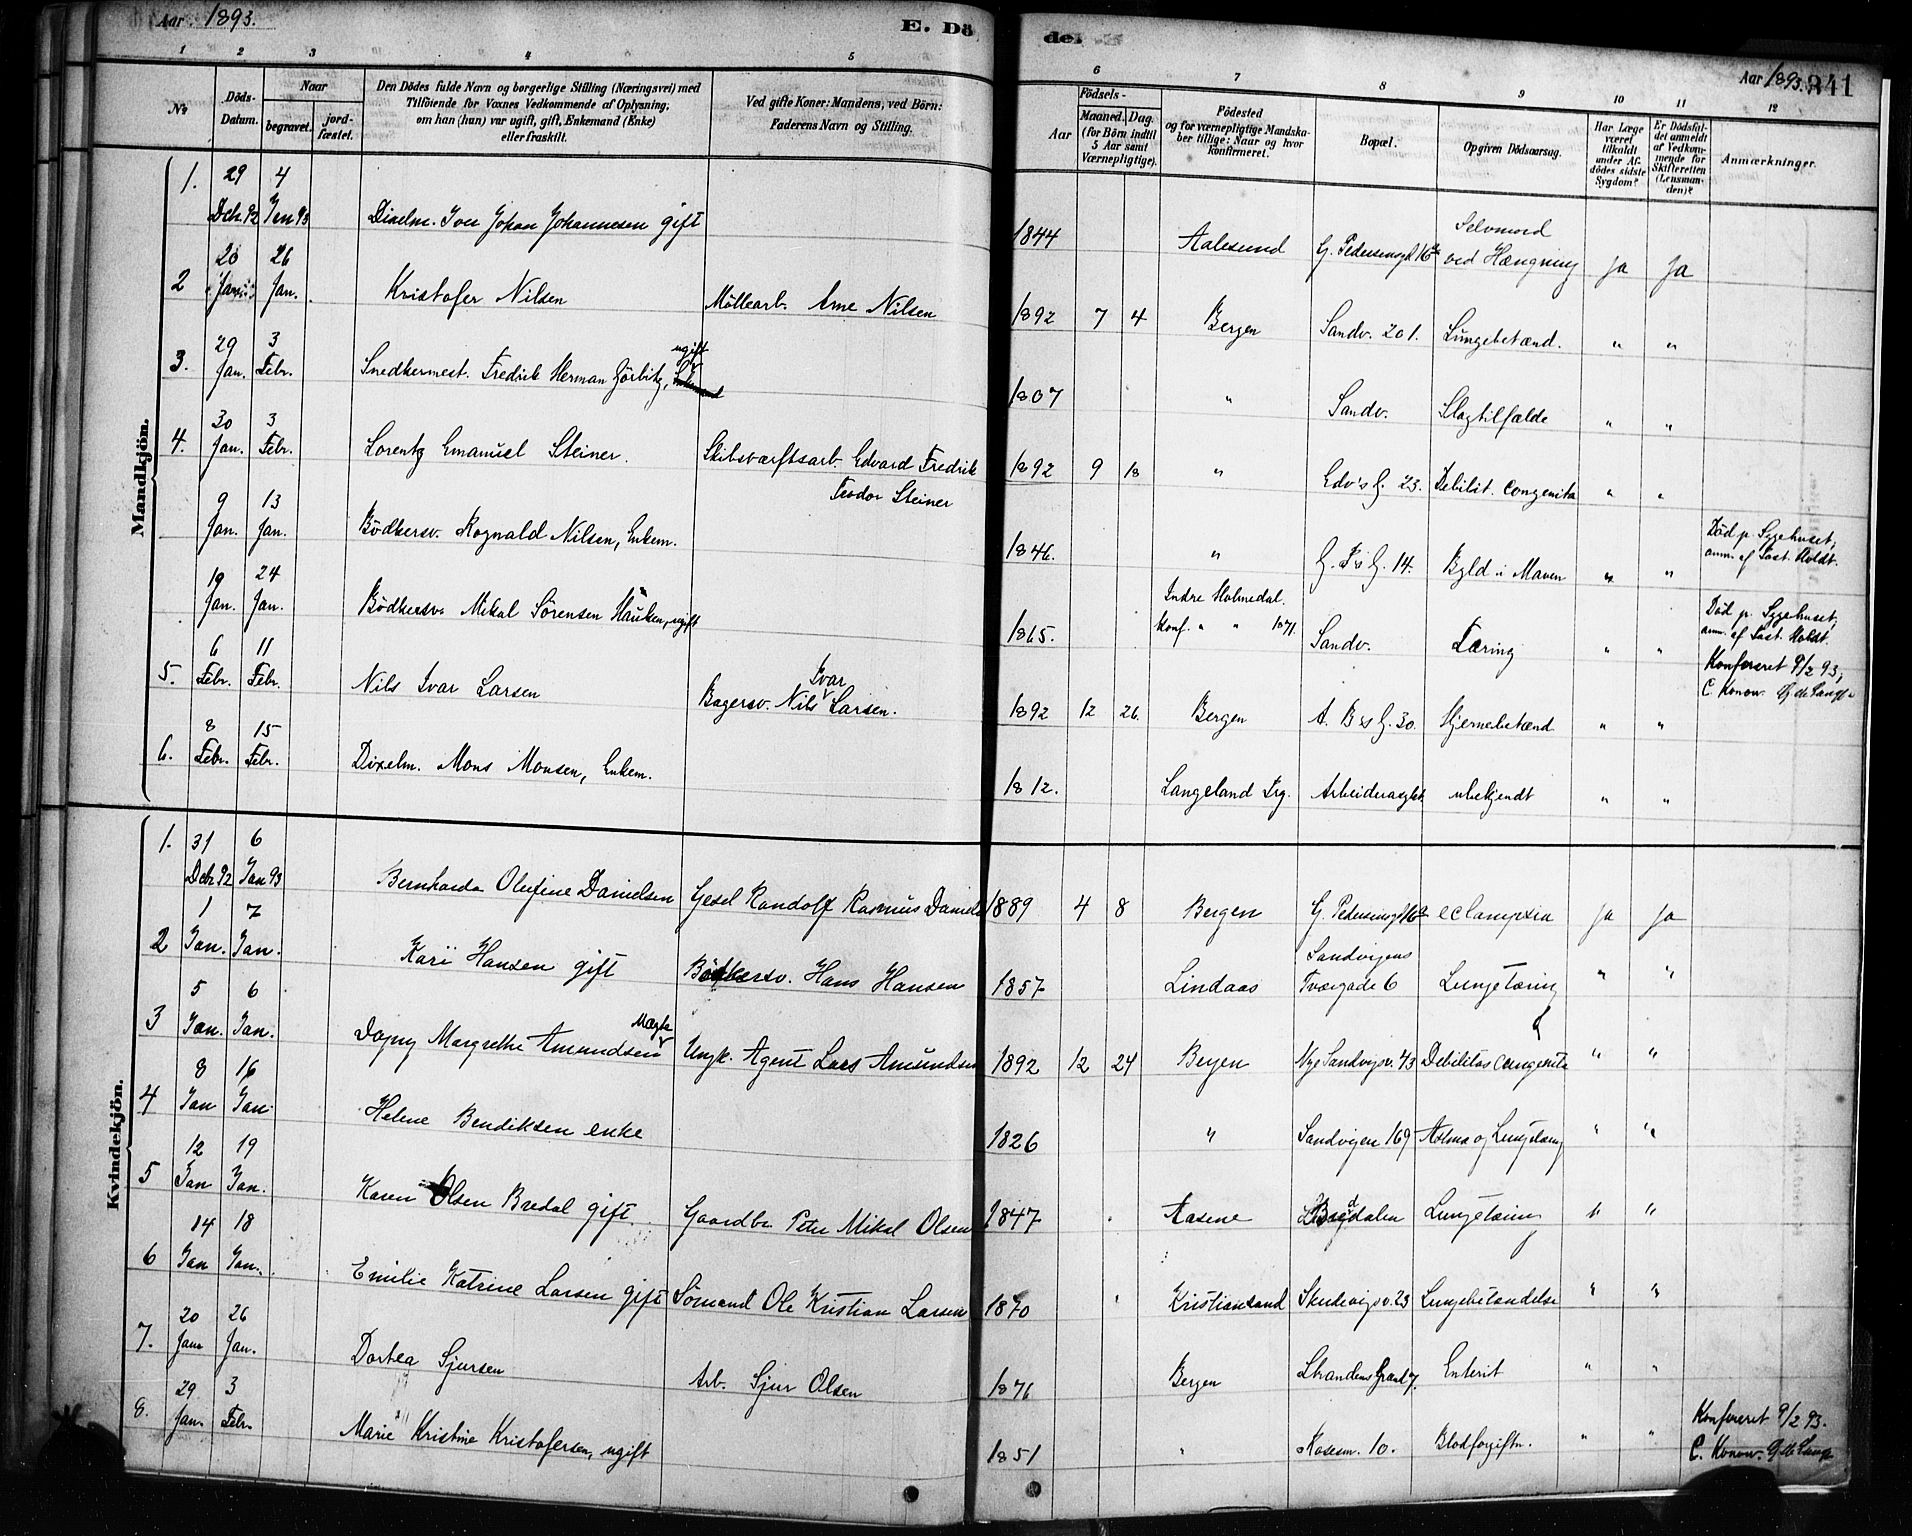 Aar 1893.
E. Dö
de.
Aar 1893. 341
1 2 3 4 5 6 7 8 9 10 11 12
No
Döds-Datum.
Naar
begravet.
jord-fæstet.
Den Dödes fulde Navn og borgerlige Stilling (Næringsvei) med
Tilföiende for Voxnes Vedkommende af Oplysning,
om han (hun) var ugift, gift, Enkemand (Enke)
eller fraskilt.
Ved gifte Koner: Mandens, ved Börn:
Faderens Navn og Stilling.
Födsels-
Aar
Maaned. Dag.
(for Börn indtil
5 Aar samt
Værnepligtige).
Födested
og for værnepligtige Mandska-
ber tillige: Naar og hvor
konfirmeret.
Bopæl.
Opgiven Dödsaarsag.
Har Læge
været
tilkaldt
under Af-
dödes sidste
Sygdom?
Er Dödsfal-
det anmeldt
af Vedkom-
mende for
Skifteretten
(Lensman-
den)?
Anmærkninger.
Mandkjön.
1. 29 Deb. 92 4 Jan 93 Dixelm. Iver Johan Johannesen gift 1844 Aalesund G. Pedersensgd 16 Selvmord ved Hængning Ja Ja
2 20 Jan. 26 Jan. Kristofer Nilsen Möllearb. Arne Nilsen 1892 7 4 Bergen Sandv. 201. Lungebetænd. " "
3. 29 Jan. 3 Febr. Snedkermest. Fredrik Herman Görbitz, ugift 1807 " Sandv. Slagtilfælde " "
4. 30 Jan. 3 Febr. Lorentz Emanuel Steiner. Skibsværftsarb. Edvard Fredrik Teodor Steiner 1892 9 18 " Edv's G. 23. Debilit. congenita " "
9 Jan. 13 Jan. Bödkersv. Rognald Nilsen, Enkem. 1846. " G. P's G. 14. Byld i Maven " " Död p. Sygehuset, anm. af Past. Holdt.
19 Jan. 24 Jan. Bödkersv. Mikal Sörensen Hauken, ugift 1865. Indre Holmedal. Konf. " " 1871. Sandv. Tæring " " Död p. Sygehuset, anm. af Past. Holdt.
5. 6 Febr. 11 Febr. Nils Ivar Larsen Bagersv. Nils Ivar Larsen. 1892 12 26 Bergen A. B's G. 30. Hjernebetænd " " Konfereret 9/2 93, C. Konow.
6. 8 Febr. 15 Febr. Dixelm. Mons Monsen, Enkem. 1812. Langeland Prg. Arbeiderasylet ubekjendt " "
Kvindekjön.
1. 31 Deb 92 6 Jan 93 Bernharda Olufine Danielsen Gesel Randolf Rasmus Daniels 1889 4 8 Bergen G. Pedersensgd 16 eclampsia Ja Ja
2 1 Jan. 7 Jan. Kari Hansen gift Bödkersv. Hans Hansen 1857 Lindaas Sandvigens Tværgade 6 Lungetæring " "
3 5 Jan. 6 Jan. Dagny Margrethe Amundsen Ungk. Agent Lars Amundsen 1892 12 24 Bergen Nye Sandvigsv. 43 Debilitas congenita " "
4 8 Jan 16 Jan. Helene Bendiksen enke 1826 " Sandvigen 169 Astma og Lungetæring " "
5 12 Jan 19 Jan. Karen Olsen Bredal gift Gaardbr. Peter Mikal Olsen 1847 Aasene Lungetæring " "
6 14 Jan 18 Jan. Emilie Katrine Larsen gift Sömand Ole Kristian Larsen 1870 Kristiansand Skudevigsv. 23 Lungebetændelse " "
7. 20 Jan 26 Jan. Dortea Sjursen Arb. Sjur Olsen 1876 Bergen Enterit " "
8. 29 Jan. 3 Febr. Marie Kristine Kristofersen, ugift 1851 " Rosesm. 10. Blodforgiftn. " " Konfereret 9/2 93. C. Konow.